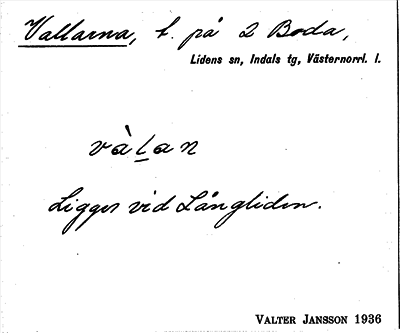 Vallarna, t. på 2 Boda,
Lidens sn, Indals tg, Västernorrl. l.
vàḷan
Ligger vid Långliden.
VALTER JANSSON 1936